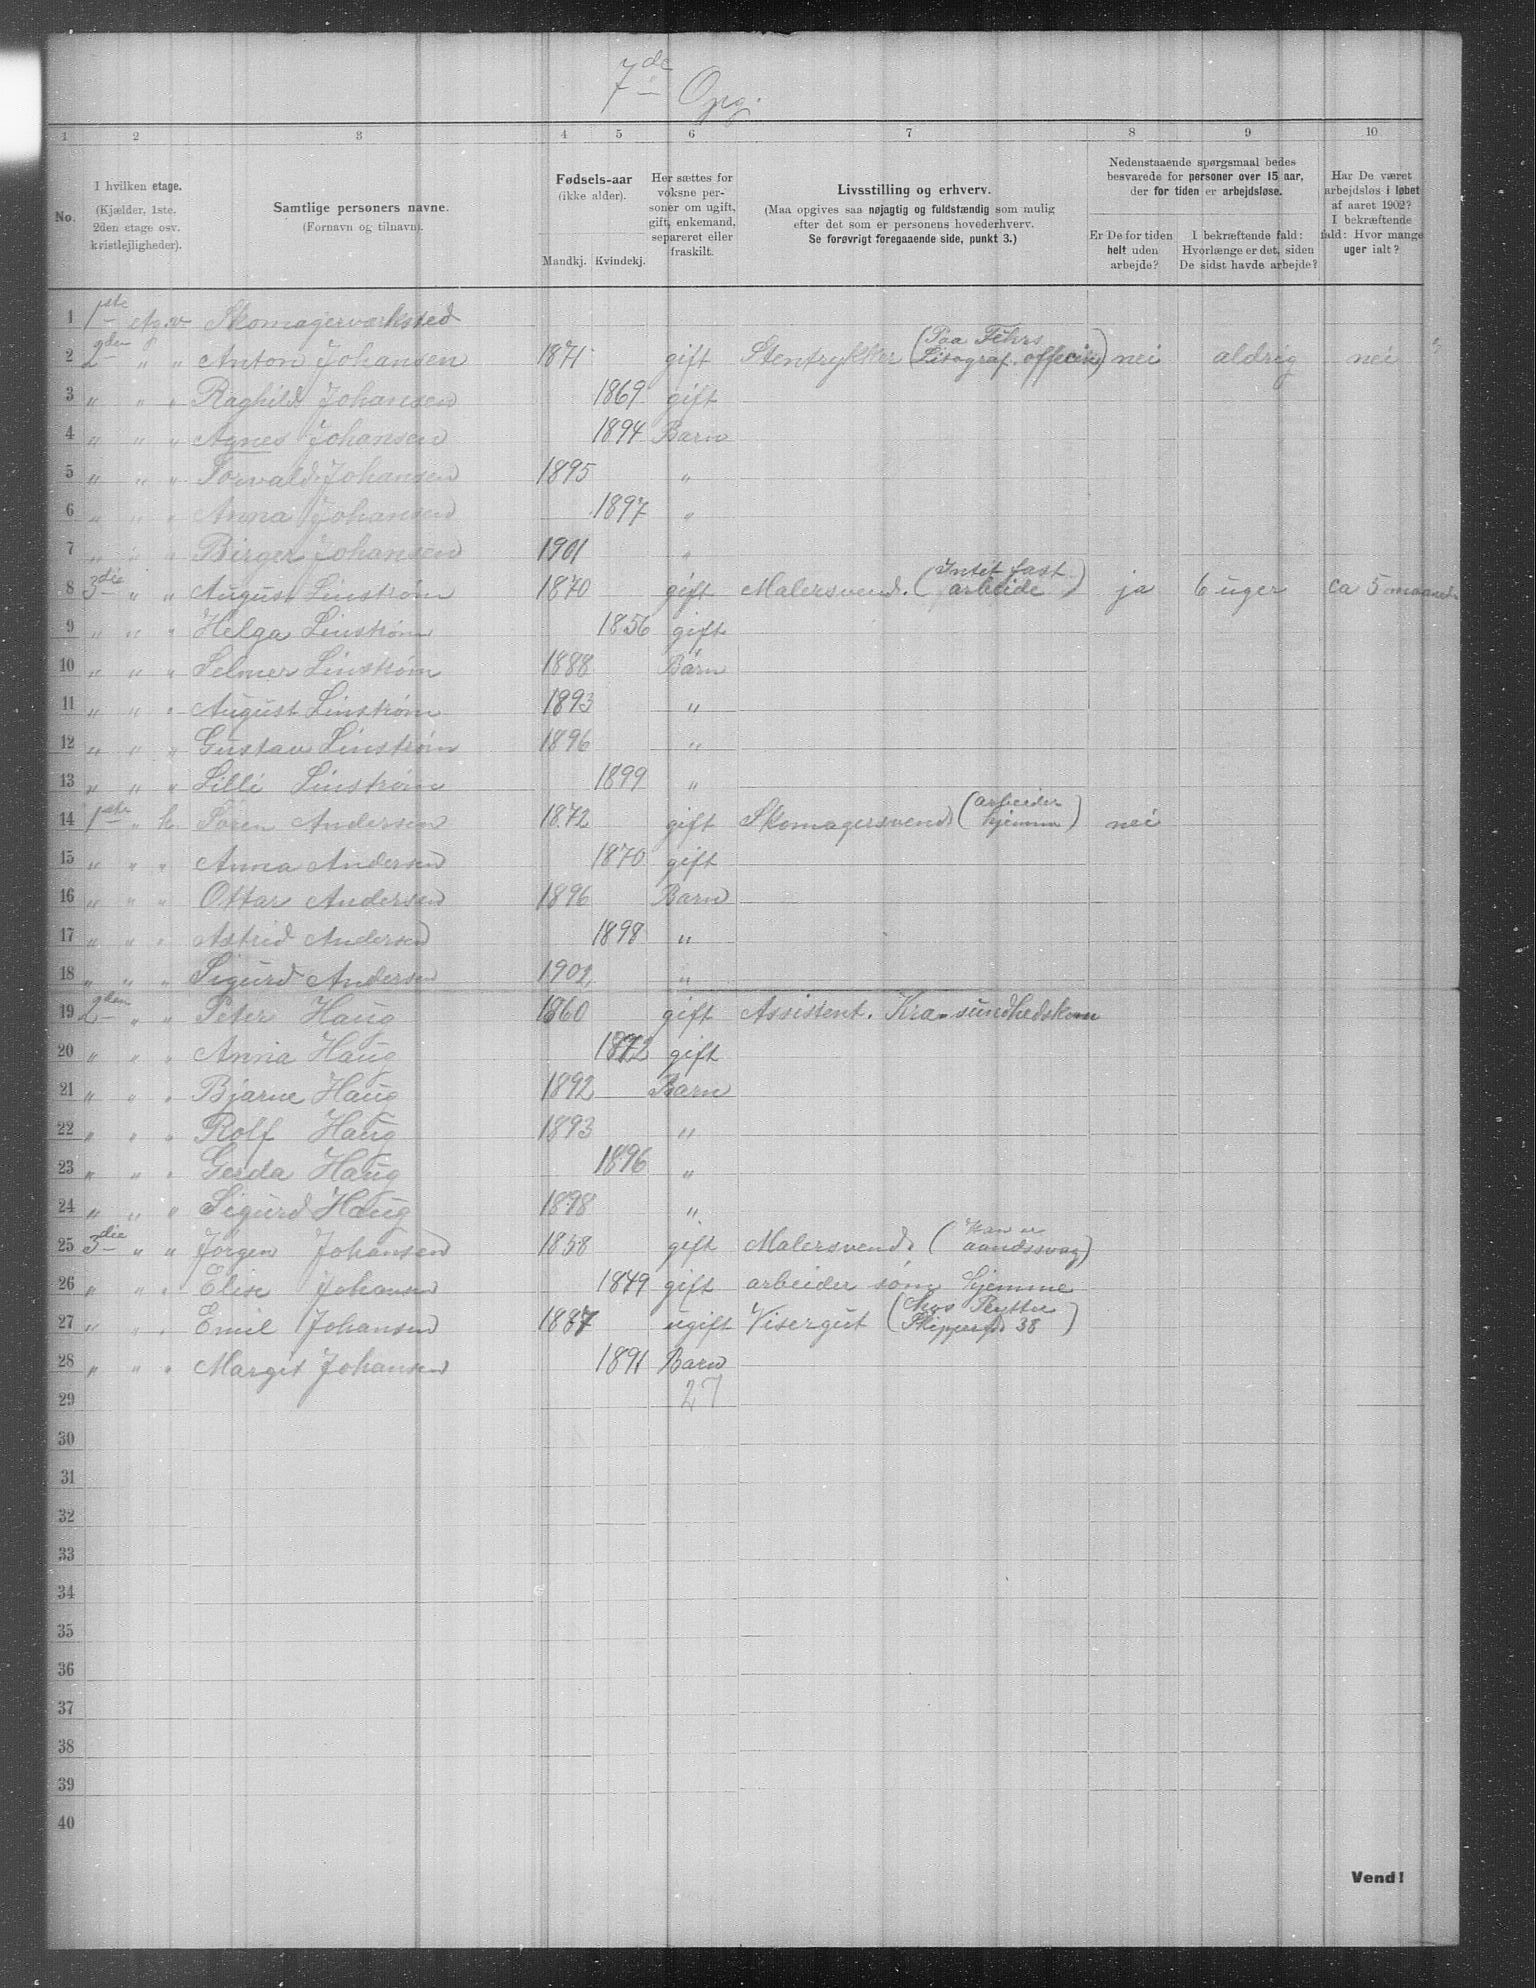 7de Opg.
1 2 3 4 5 6 7 8 9 10
No.
I hvilken etage.
(Kjælder, 1ste.
2den etage osv.
kvistlejligheder).
Samtlige personers navne.
(Fornavn og tilnavn).
Fødsels-aar
(ikke alder).
Mandkj. Kvindekj.
Her sættes for
voksne per-
soner om ugift,
gift, enkemand,
separeret eller
fraskilt.
Livsstilling og erhverv.
(Maa opgives saa nøjagtig og fuldstændig som mulig
efter det som er personens hovederhverv.
Se forøvrigt foregaaende side, punkt 3.)
Nedenstaaende spørgsmaal bedes
besvarede for personer over 15 aar,
der for tiden er arbejdsløse.
Er De for tiden
helt uden
arbejde?
I bekræftende fald:
Hvorlænge er det, siden
De sidst havde arbejde?
Har De været
arbejdsløs i løbet
af aaret 1902?
I bekræftende
fald: Hvor mange
uger ialt?
1 1ste etg. v Skomagerværksted
2 2den " " Anton Johansen 1871 gift Stentrykker (Paa Fehrs Litograf. officin) nei aldrig nei
3 " " " Raghild Johansen 1869 gift
4 " " " Agnes Johansen 1894 Barn
5 " " " Torvald Johansen 1895 "
6 " " " Anna Johansen 1897 "
7 " " " Birger Johansen 1901 "
8 3die " " August Linstrøm 1870 gift Malersvend. (Intet fast arbeide) ja 6 uger ca 5 maaned
9 " " " Helga Linstrøm 1856 gift
10 " " " Selmer Linstrøm 1888 Barn
11 " " " August Linstrøm 1893 "
12 " " " Gustav Linstrøm 1896 "
13 " " " Lilli Linstrøm 1899 "
14 1ste " h Søren Andersen 1872 gift Skomagersvend (arbeider hjemme) nei
15 " " " Anna Andersen 1870 gift
16 " " " Ottar Andersen 1896 Barn
17 " " " Astrid Andersen 1898 "
18 " " " Sigurd Andersen 1901 "
19 2den " " Peter Haug 1860 gift Assistent. Kra. sundhedskom
20 " " " Anna Haug 1872 gift
21 " " " Bjarne Haug 1892 Barn
22 " " " Rolf Haug 1893 "
23 " " " Gerda Haug 1896 "
24 " " " Sigurd Haug 1898 "
25 3die " " Jørgen Johansen 1858 gift Malersvend. (Han er aandssvag)
26 " " " Elise Johansen 1849 gift arbeider søm hjemme
27 " " " Emil Johansen 1887 ugift Visergut (hos Rytter Skippergd 38)
28 " " " Margit Johansen 1891 Barn
29 27
30
31
32
33
34
35
36
37
38
39
40
Vend!